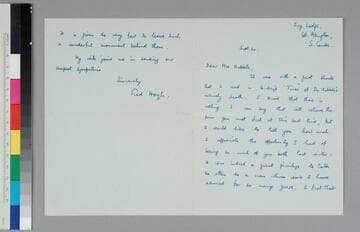 Ivy Lodge,
Gt. Abington,
S. Cambs.
Sept 30.
Dear Mrs Hubble,
It was with a great shock
that I read in to-day's Times of Dr. Hubble's
untimely death. I know that there is
nothing I can say that will relieve the
pain you must feel at this sad time, but
I would like to tell you how much
I appreciate the opportunity I had of
seeing so much of you both last winter.
It was indeed a great privilege to talk
so often to a man whose work I have
admired for so many years. I feel that
it is given to very few to leave such
a wonderful monument behind them.
My wife joins me in sending our
deepest sympathies
Sincerely
Fred Hoyle.